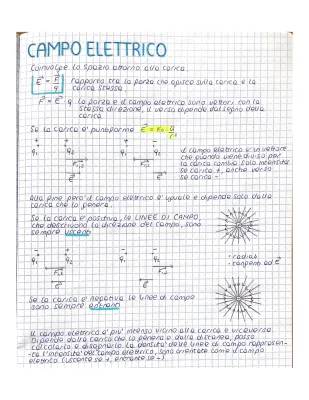 CAMPO ELETTRICO
Coinvolge lo spazio attorno alla carica.
E = F/q rapporto tra la forza che agisce sulla carica e la
carica stessa
F = E · q la forza e il campo elettrico sono vettori con la
stessa direzione, il verso dipende dal segno della
carica
Se la carica e' puntiforme E = K₀ ·
+ + - +
q₁ q₂ q₁ q₂
E E
il campo elettrico e' un vettore
che quando viene diviso per
la carica cambia solo intensita'
se carica +, anche verso
se carica -
Alla fine pero' il campo elettrico e' uguale e dipende solo dalla
carica che lo genera.
Se la carica e' positiva, le LINEE DI CAMPO,
che descrivono la direzione del campo, sono
sempre uscenti
+ - - -
q₁ q₂ q₁ q₂
E E
• radiali
• tangenti ad E
Se la carica e' negativa le linee di campo
sono sempre entranti
Il campo elettrico e' piu' intenso vicino alla carica e viceversa
Dipende dalla carica che lo genera e dalla distanza, posso
calcolarlo e disegnarlo. La densita' delle linee di campo rappresen-
-ta l'intensita' del campo elettrico, sono orientate come il campo
elettrico (uscente se +, entrante se -)